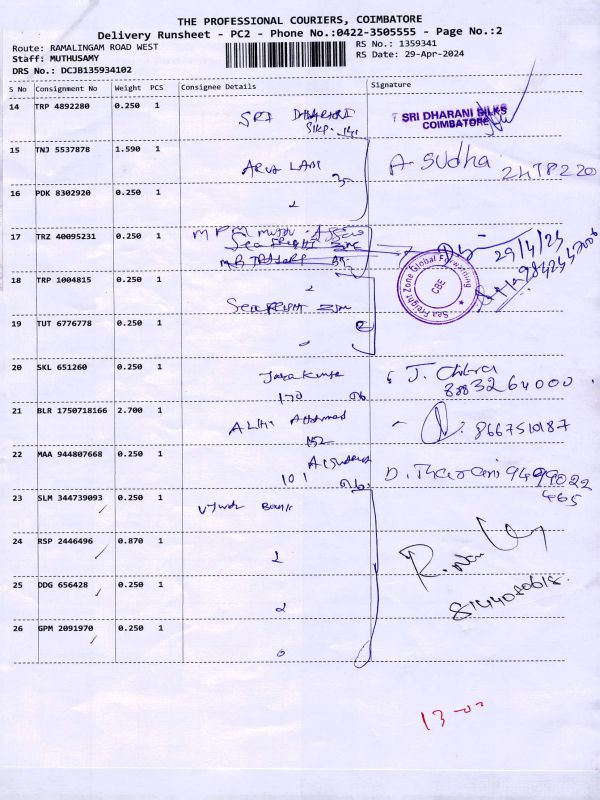 THE PROFESSIONAL COURIERS, COIMBATORE
Delivery Runsheet - PC2 - Phone No.:0422-3505555 - Page No.:2
Route: RAMALINGAM ROAD WEST
RS No.: 1359341
Staff: MUTHUSAMY
RS Date: 29-Apr-2024
DRS No.: DCJB135934102
S No Consignment No Weight PCS Consignee Details Signature
14 TRP 4892280 0.250 1 SRI DHARANI
SRI DHARANI SILKS
COIMBATORE
15 TNJ 5537878 1.590 1
A. Sudha
16 PDK 8302920 0.250 1
17 TRZ 40095231 0.250 1
Sea Freight Zone
29/4/24
Sea Freight Zone Global Forwarding
CBE
18 TRP 1004815 0.250 1
Sea Freight Zone
19 TUT 6776778 0.250 1
20 SKL 651260 0.250 1
J. Chitra
8883264000
170
21 BLR 1750718166 2.700 1
8667510187
152
22 MAA 944807668 0.250 1
101
D. Tharani 9499022
465
23 SLM 344739093 0.250 1 Bank
24 RSP 2446496 0.870 1
25 DDG 656428 0.250 1
26 GPM 2091970 0.250 1